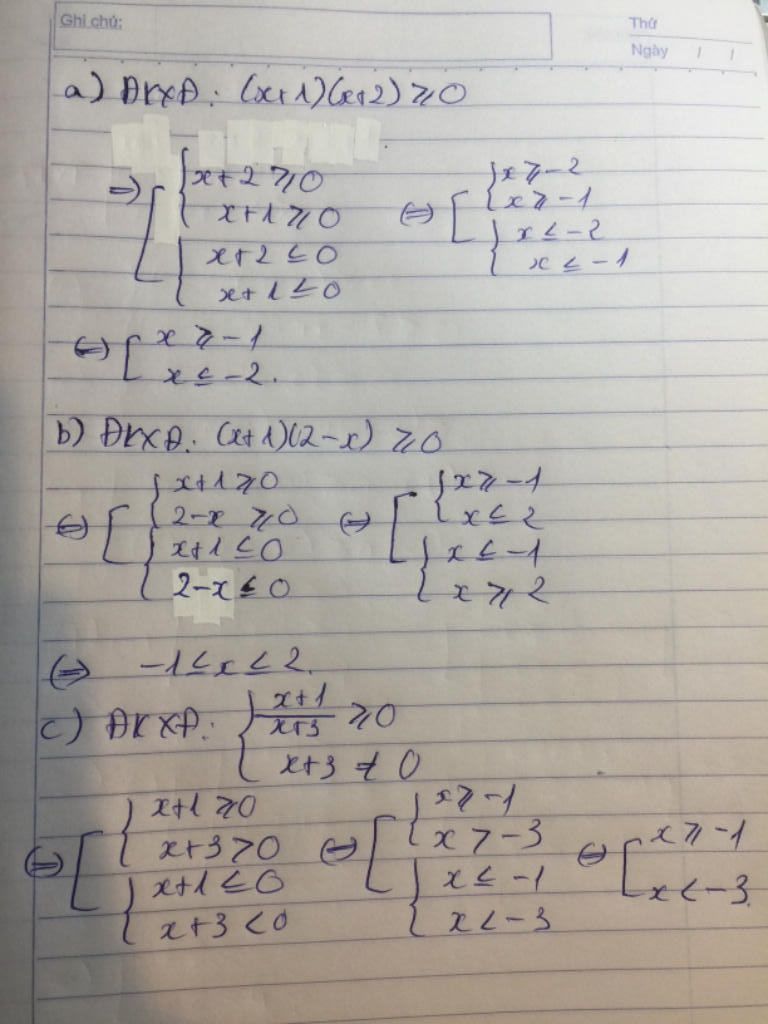 Ghi chú:
Thứ
Ngày / /
a) ĐKXĐ: (x+1)(x+2) ≥ 0
=> [ { x+2 ≥ 0 <=> [ { x ≥ -2
x+1 ≥ 0 x ≥ -1
{ x+2 ≤ 0 { x ≤ -2
x+1 ≤ 0 x ≤ -1
<=> [ x ≥ -1
x ≤ -2.
b) ĐKXĐ: (x+1)(2-x) ≥ 0
<=> [ { x+1 ≥ 0 <=> [ { x ≥ -1
2-x ≥ 0 x ≤ 2
{ x+1 ≤ 0 { x ≤ -1
2-x ≤ 0 x ≥ 2
<=> -1 ≤ x ≤ 2.
c) ĐKXĐ: { (x+1)/(x+3) ≥ 0
x+3 ≠ 0
<=> [ { x+1 ≥ 0 <=> [ { x ≥ -1 <=> [ x ≥ -1
x+3 > 0 x > -3 x < -3.
{ x+1 ≤ 0 { x ≤ -1
x+3 < 0 x < -3